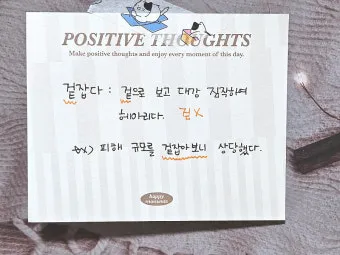 POSITIVE THOUGHTS
Make positive thoughts and enjoy every moment of this day.
겉잡다 : 겉으로 보고 대강 짐작하여
헤아리다. 걷X
ex) 피해 규모를 겉잡아 보니 상당했다.
happy
moments